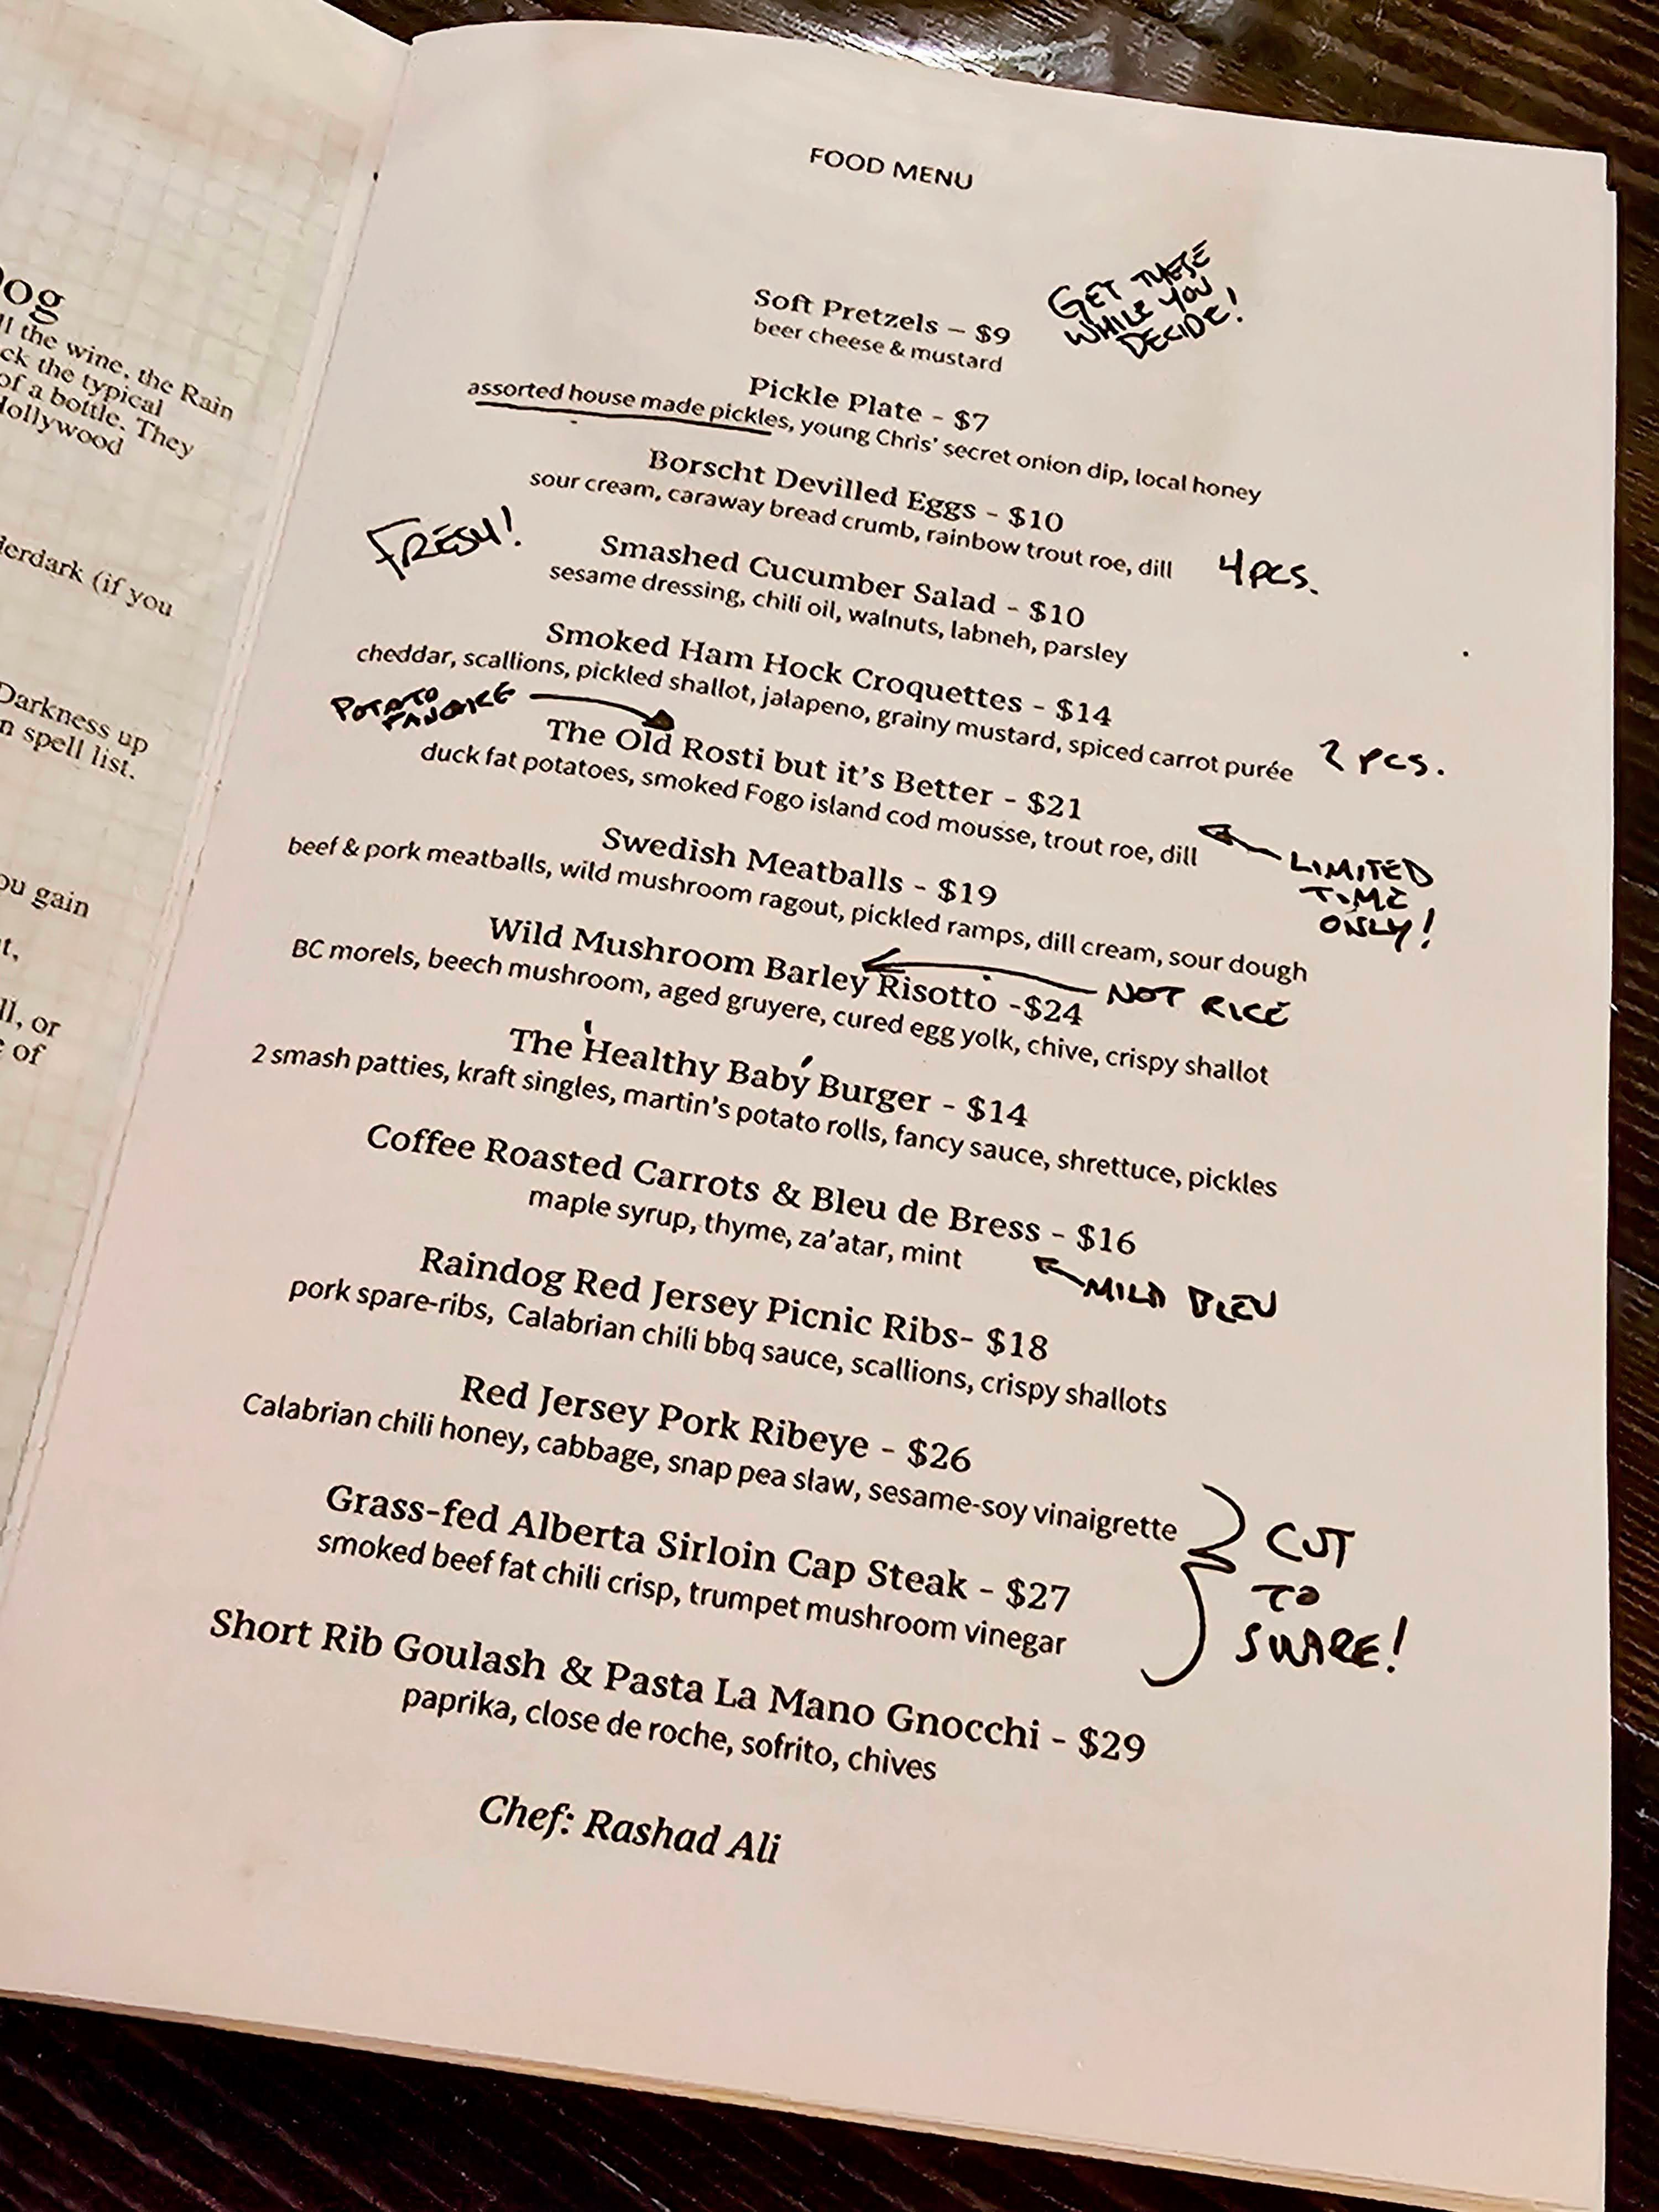 og
ll the wine, the Rain
ck the typical
of a bottle. They
Hollywood
derdark (if you
Darkness up
n spell list.
ou gain
t,
ll, or
e of
FOOD MENU
Soft Pretzels – $9
beer cheese & mustard
GET THESE
WHILE YOU
DECIDE!
Pickle Plate - $7
assorted house made pickles, young Chris' secret onion dip, local honey
Borscht Devilled Eggs - $10
sour cream, caraway bread crumb, rainbow trout roe, dill
4 PCS.
FRESH!
Smashed Cucumber Salad - $10
sesame dressing, chili oil, walnuts, labneh, parsley
Smoked Ham Hock Croquettes - $14
cheddar, scallions, pickled shallot, jalapeno, grainy mustard, spiced carrot purée
2 PCS.
POTATO
The Old Rosti but it's Better - $21
duck fat potatoes, smoked Fogo island cod mousse, trout roe, dill
LIMITED
TIME
ONLY!
Swedish Meatballs - $19
beef & pork meatballs, wild mushroom ragout, pickled ramps, dill cream, sour dough
Wild Mushroom Barley Risotto -$24
NOT RICE
BC morels, beech mushroom, aged gruyere, cured egg yolk, chive, crispy shallot
The 'Healthy Baby' Burger - $14
2 smash patties, kraft singles, martin's potato rolls, fancy sauce, shrettuce, pickles
Coffee Roasted Carrots & Bleu de Bress - $16
maple syrup, thyme, za'atar, mint
MILD BLEU
Raindog Red Jersey Picnic Ribs- $18
pork spare-ribs, Calabrian chili bbq sauce, scallions, crispy shallots
Red Jersey Pork Ribeye - $26
Calabrian chili honey, cabbage, snap pea slaw, sesame-soy vinaigrette
Grass-fed Alberta Sirloin Cap Steak - $27
smoked beef fat chili crisp, trumpet mushroom vinegar
CUT
TO
SHARE!
Short Rib Goulash & Pasta La Mano Gnocchi - $29
paprika, close de roche, sofrito, chives
Chef: Rashad Ali